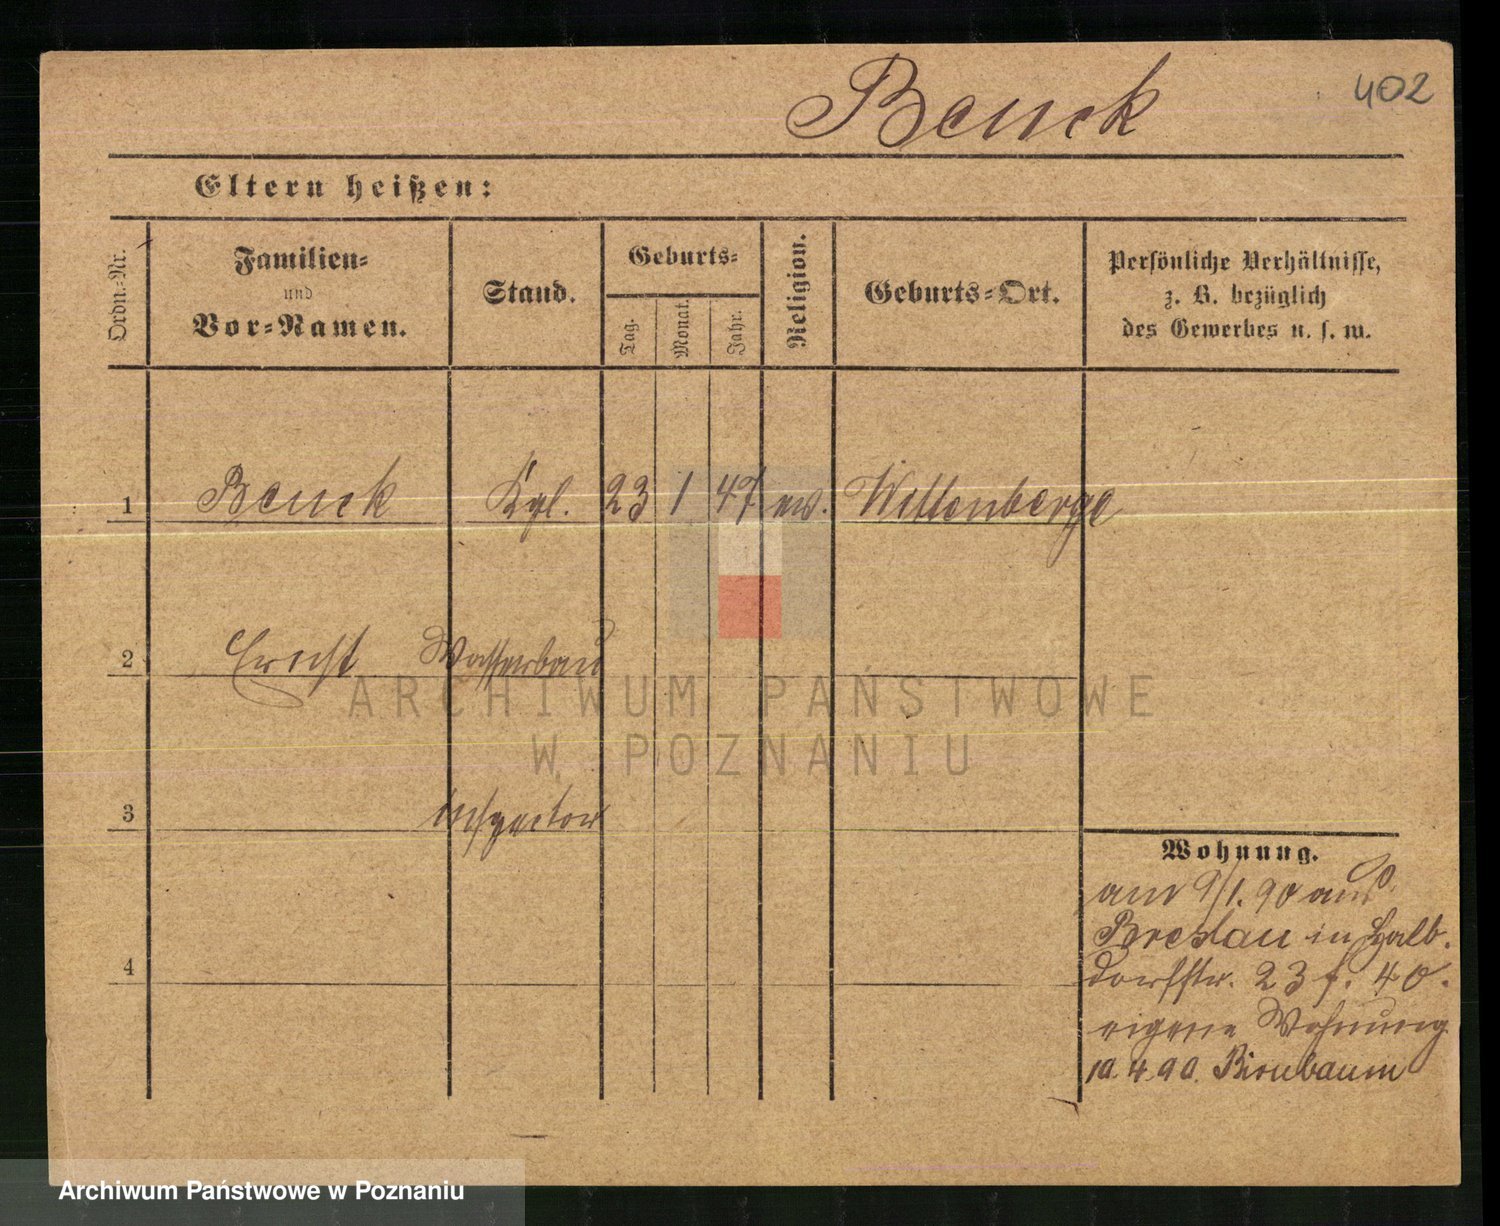 Beuck
402
Eltern heißen:
Ordn.-Nr.
Familien-
und
Vor-Namen.
Stand.
Geburts-
Tag.
Monat.
Jahr.
Religion.
Geburts-Ort.
Persönliche Verhältnisse,
z. B. bezüglich
des Gewerbes u. s. w.
1 Beuck Kgl. 23 1 47 ev. Wittenberge
2 Ernst Wasserbau
3 inspector
4
Wohnung.
am 9/1. 90 aus
Breslau in Halb.
dorfstr. 23 f. 40.
eigene Wohnung
10.4.90. Birnbaum
ARCHIWUM PAŃSTWOWE
W POZNANIU
Archiwum Państwowe w Poznaniu